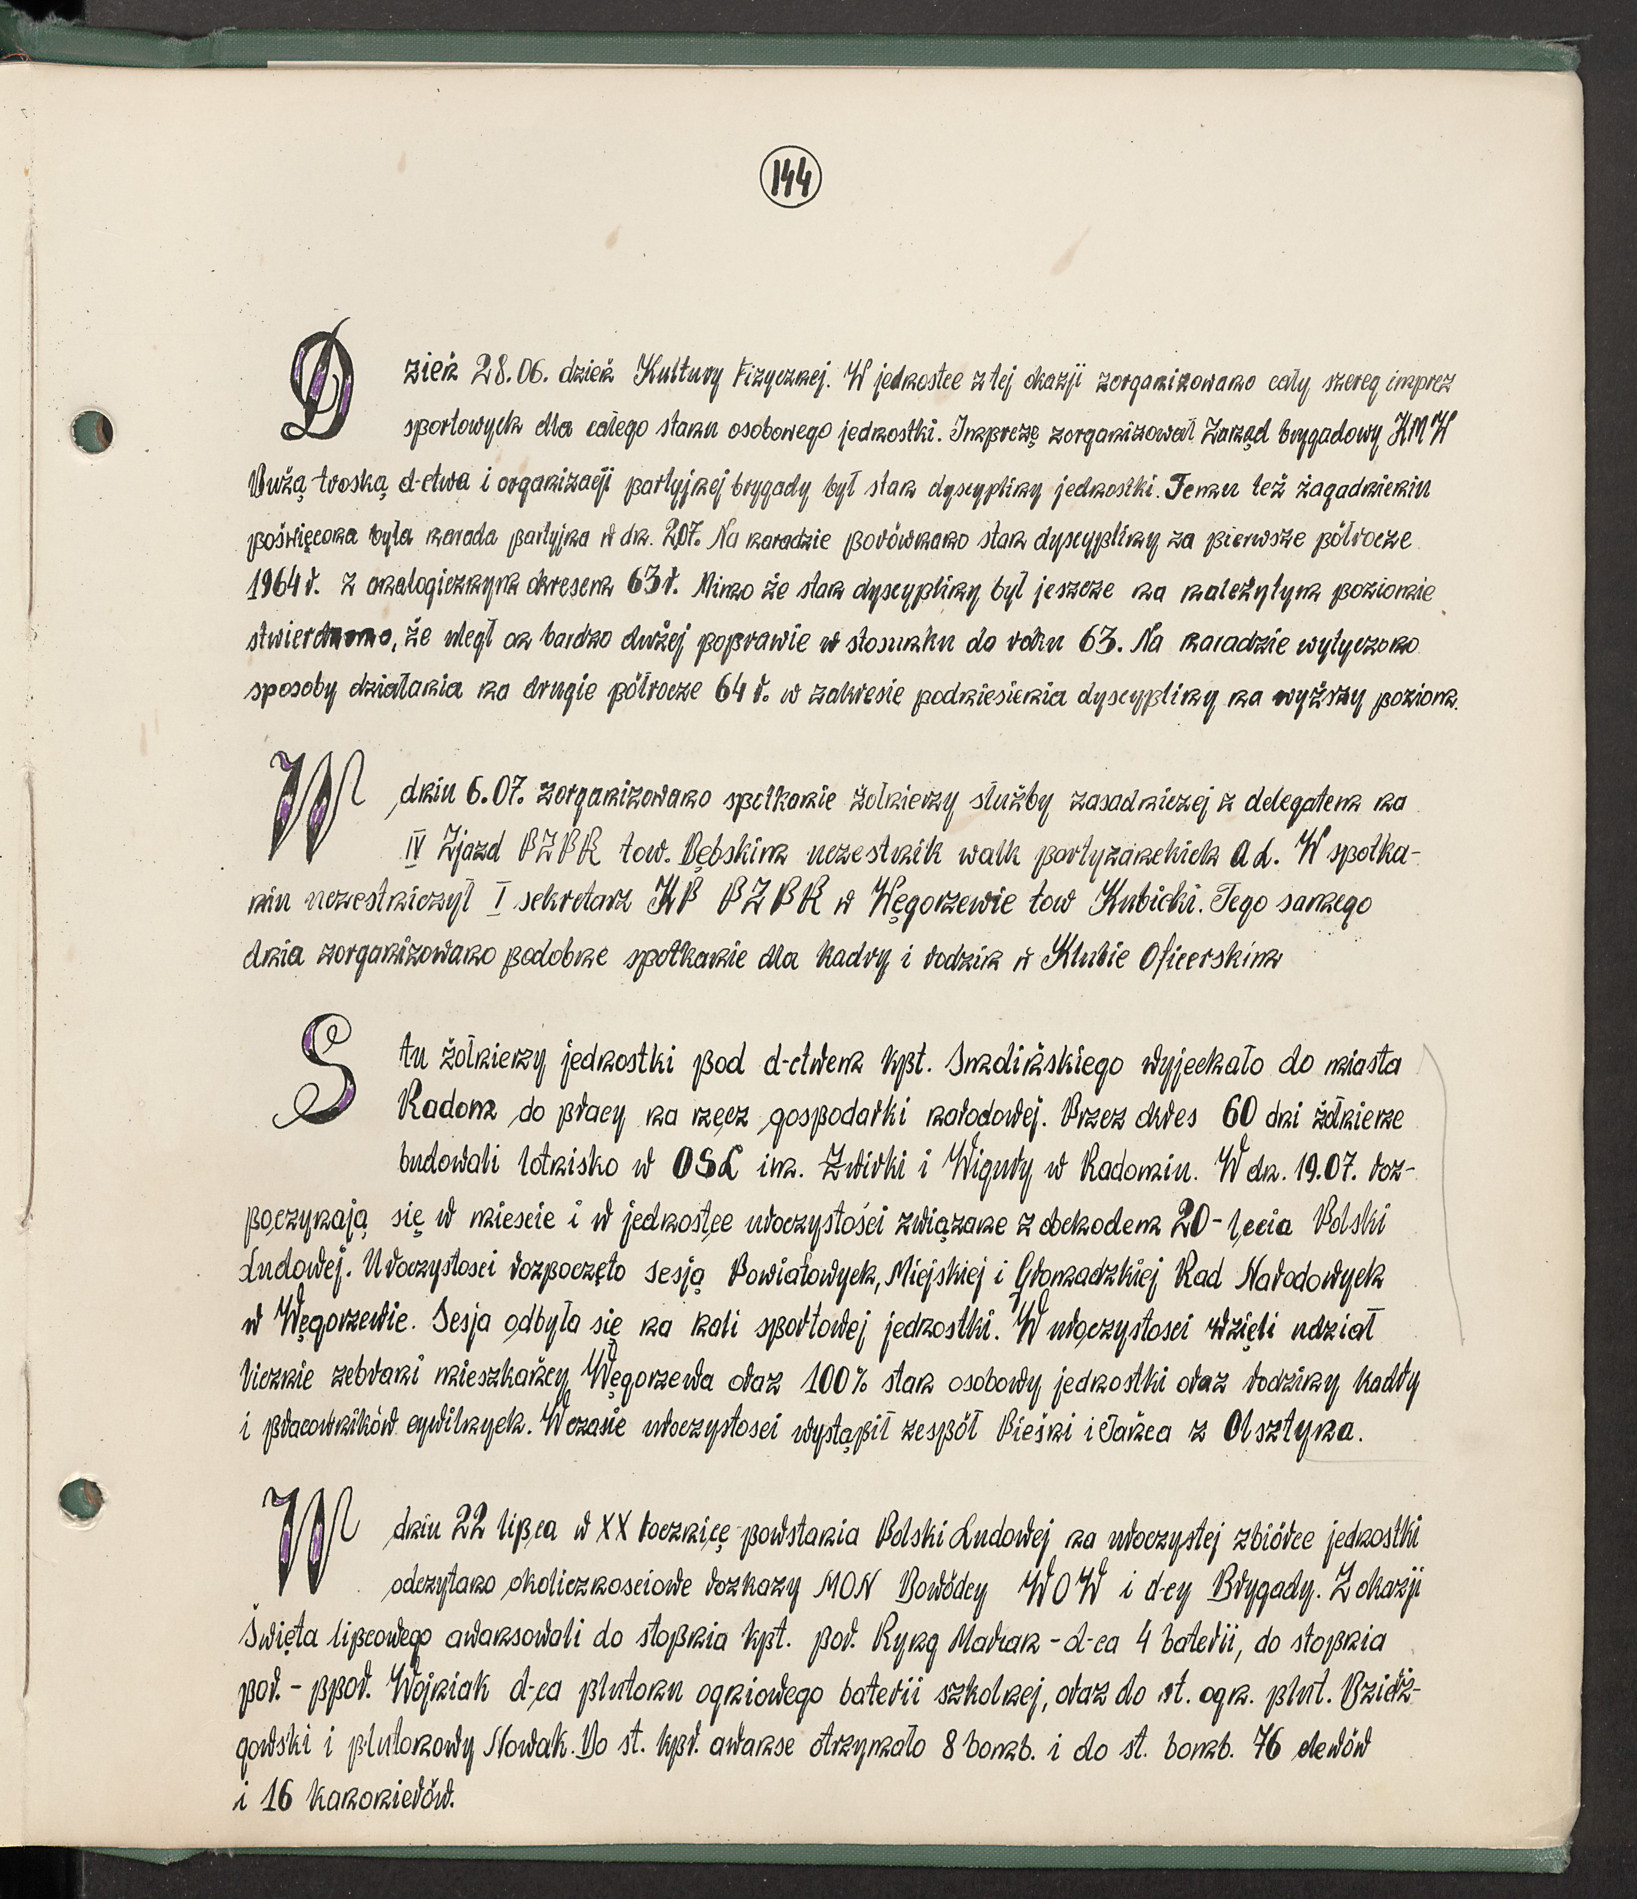 144
Dzień 28.06. dzień Kultury Fizycznej. W jednostce z tej okazji zorganizowano cały szereg imprez
sportowych dla całego stanu osobowego jednostki. Imprezę zorganizował Zarząd brygadowy KMW
Dużą troską d-ctwa i organizacji partyjnej brygady był stan dyscypliny jednostki. Temu też zagadnieniu
poświęcona była narada partyjna w dn. 2.07. Na naradzie porównano stan dyscypliny za pierwsze półrocze
1964 r. z analogicznym okresem 63 r. Mimo że stan dyscypliny był jeszcze na należytym poziomie
stwierdzono, że uległ on bardzo dużej poprawie w stosunku do roku 63. Na naradzie wytyczono
sposoby działania na drugie półrocze 64 r. w zakresie podniesienia dyscypliny na wyższy poziom.
W dniu 6.07. zorganizowano spotkanie żołnierzy służby zasadniczej z delegatem na
IV Zjazd PZPR tow. Dębskim uczestnik walk partyzanckich AL. W spotka-
niu uczestniczył I sekretarz KP PZPR w Węgorzewie tow Kubicki. Tego samego
dnia zorganizowano podobne spotkanie dla kadry i rodzin w Klubie Oficerskim
Stu żołnierzy jednostki pod d-ctwem kpt. Smolińskiego wyjechało do miasta
Radom do pracy na rzecz gospodarki narodowej. Przez okres 60 dni żołnierze
budowali lotnisko w OSL im. Żwirki i Wigury w Radomiu. W dn. 19.07. roz-
poczynają się w mieście i w jednostce uroczystości związane z obchodem 20-lecia Polski
Ludowej. Uroczystosci rozpoczęto sesją Powiatowych, Miejskiej i Gromadzkiej Rad Narodowych
w Węgorzewie. Sesja odbyła się na hali sportowej jednostki. W uroczystosci wzięli udział
licznie zebrani mieszkańcy Węgorzewa oraz 100% stan osobowy jednostki oraz rodziny kadry
i pracowników cywilnych. W czasie uroczystosci wystąpił zespół Pieśni i Tańca z Olsztyna.
W dniu 22 lipca w XX rocznicę powstania Polski Ludowej na uroczystej zbiórce jednostki
odczytano okolicznosciowe rozkazy MON Dowódcy WOW i d-cy Brygady. Z okazji
Święta lipcowego awansowali do stopnia kpt. por. Ryng Marian - d-ca 4 baterii, do stopnia
por. - ppor. Wojniak d-ca plutonu ogniowego baterii szkolnej, oraz do st. ogn. plut. Dzierż-
gowski i plutonowy Nowak. Do st. kpr. awanse otrzymało 8 bomb. i do st. bomb. 76 elewów
i 16 kanonierów.